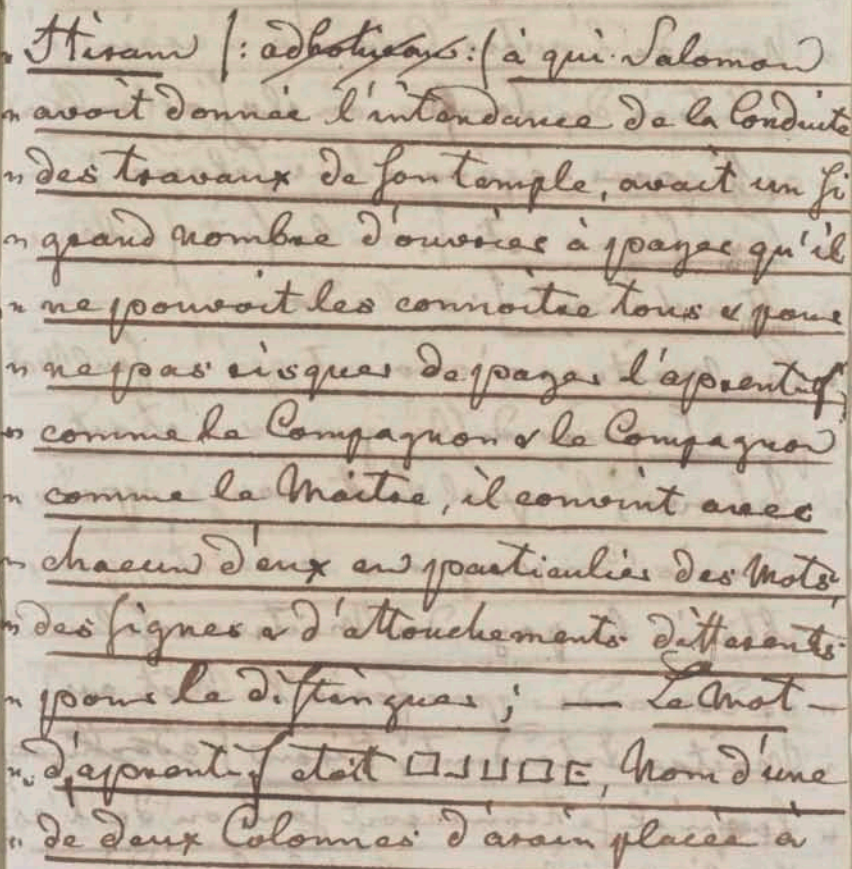 " Hiram /: :/ à qui Salomon
" avoit donnée l'intendance de la Conduite
" des travaux de son temple, avait un si
" grand nombre d'ouvries à payer qu'il
" ne pouvoit les connoitre tous & pour
" ne pas risquer de payer l'aprentif,
" comme le Compagnon & le Compagnon
" comme le Maitre, il convint avec
" chacun d'eux en particulier des Mots,
" des signes & d'attouchements differents
" pour le distinguer ; — Le Mot —
" d'aprentif etoit , Nom d'une
" de deux Colonnes d'arain placée à